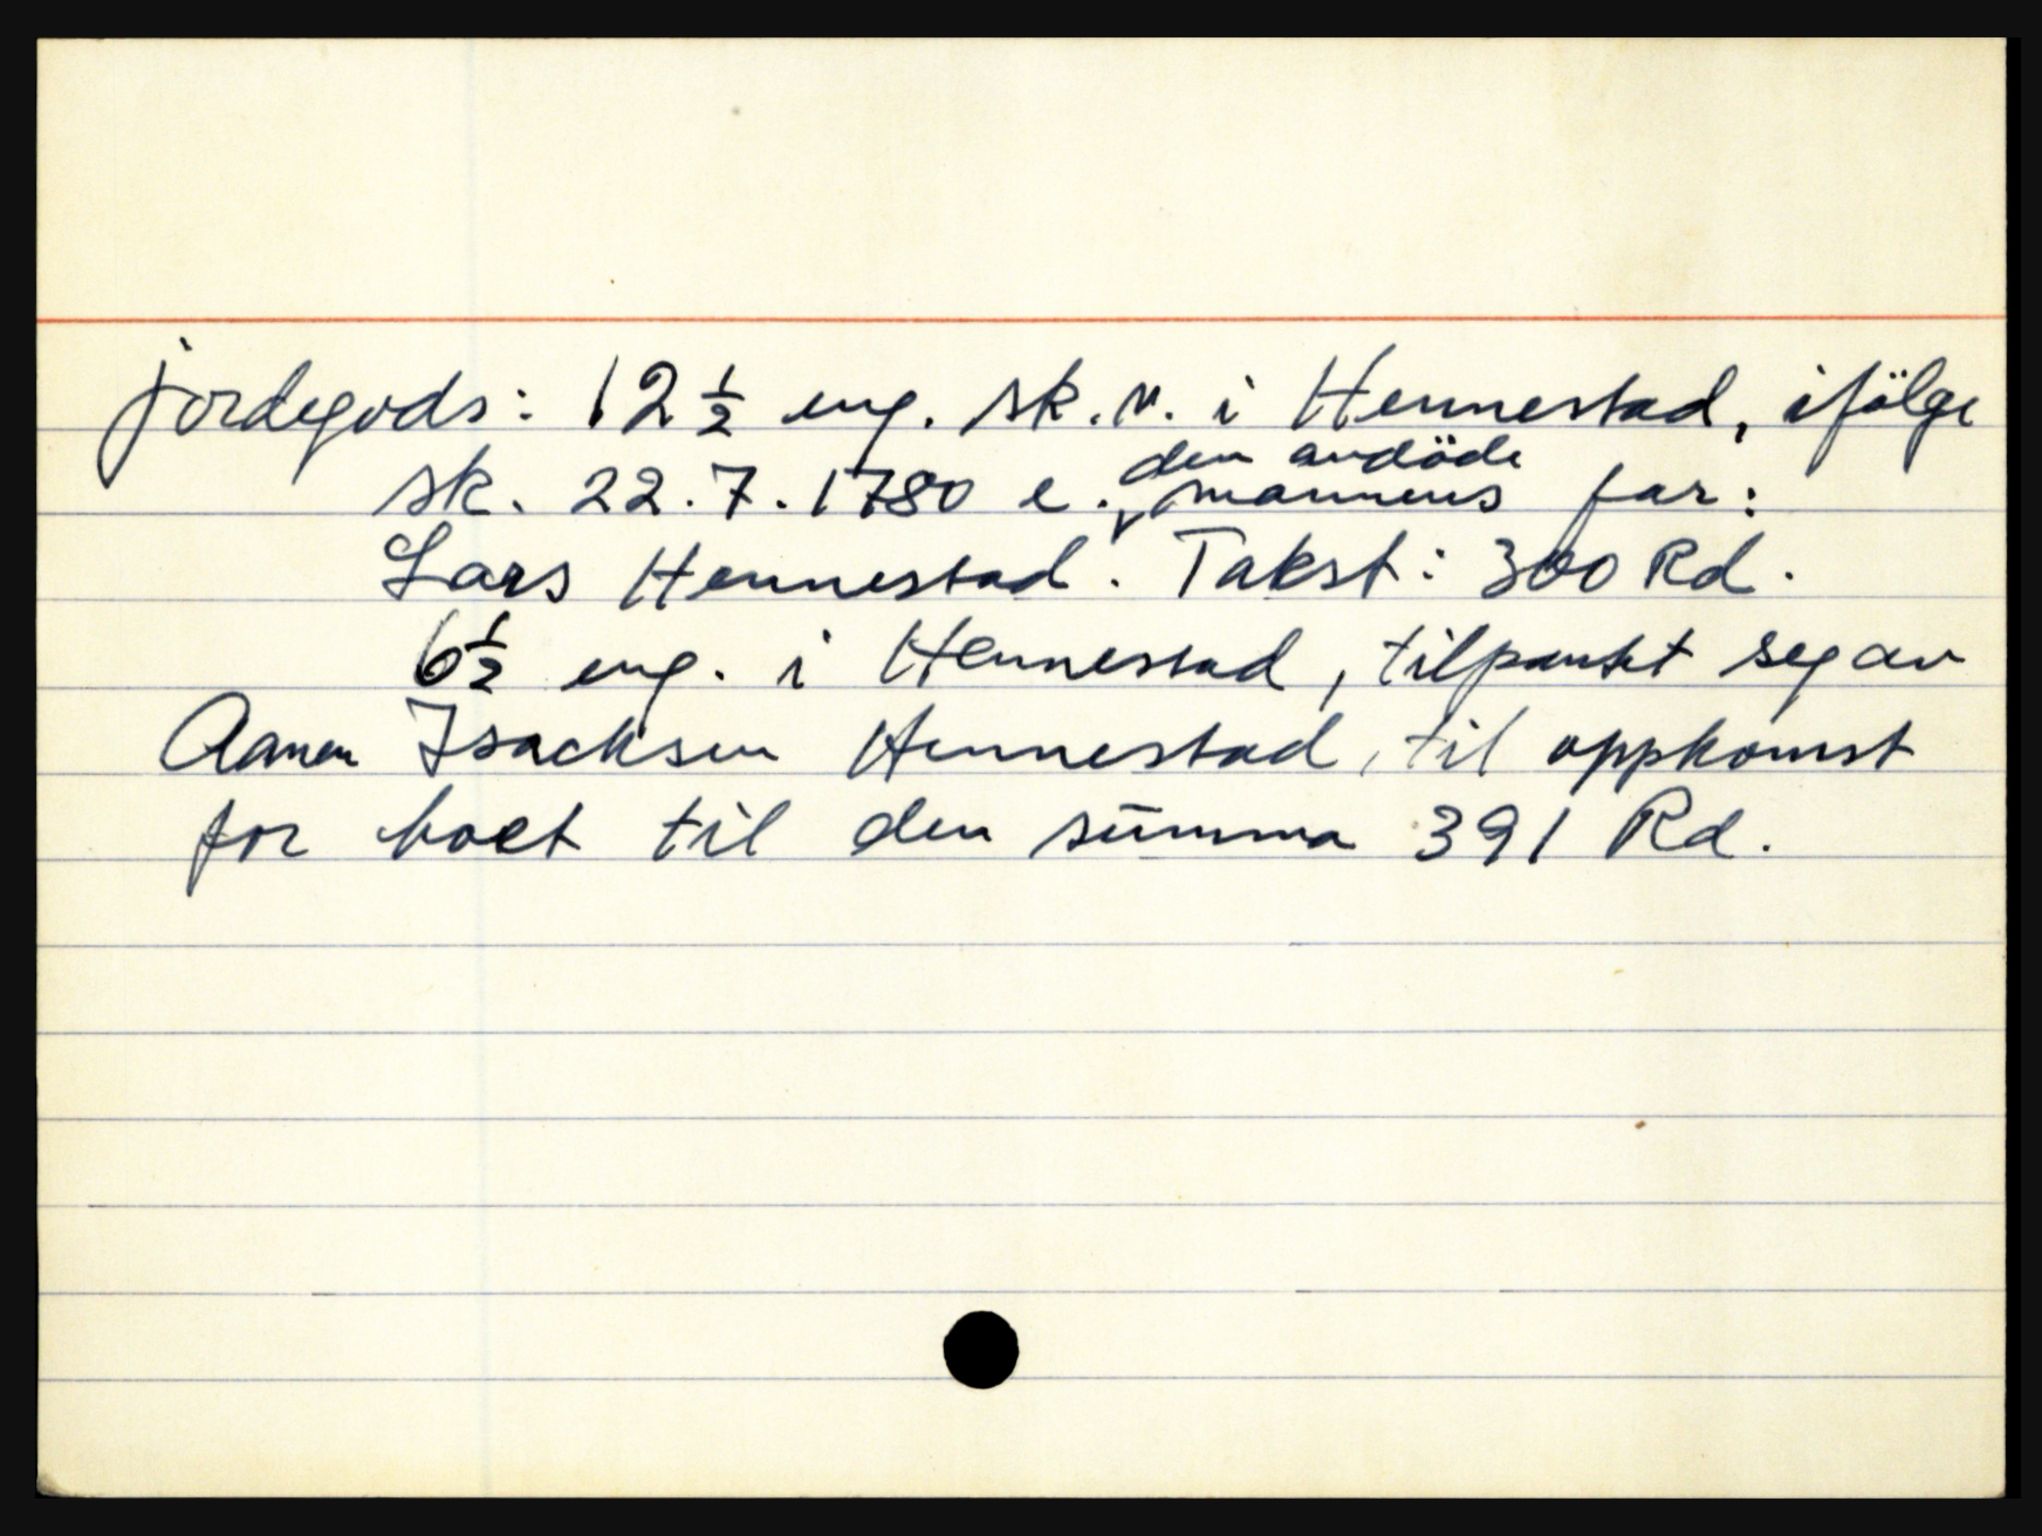 jordegods: 12 ½ eng. sk. v. i Hennestad, ifölge
sk. 22.7.1780 e. den avdöde mannens far:
Lars Hennestad. Takst: 300 Rd.
6½ eng. i Hennestad, tilpantet seg av
Aanen Isachsen Hennestad, til oppkomst
for boet til den summa 391 Rd.